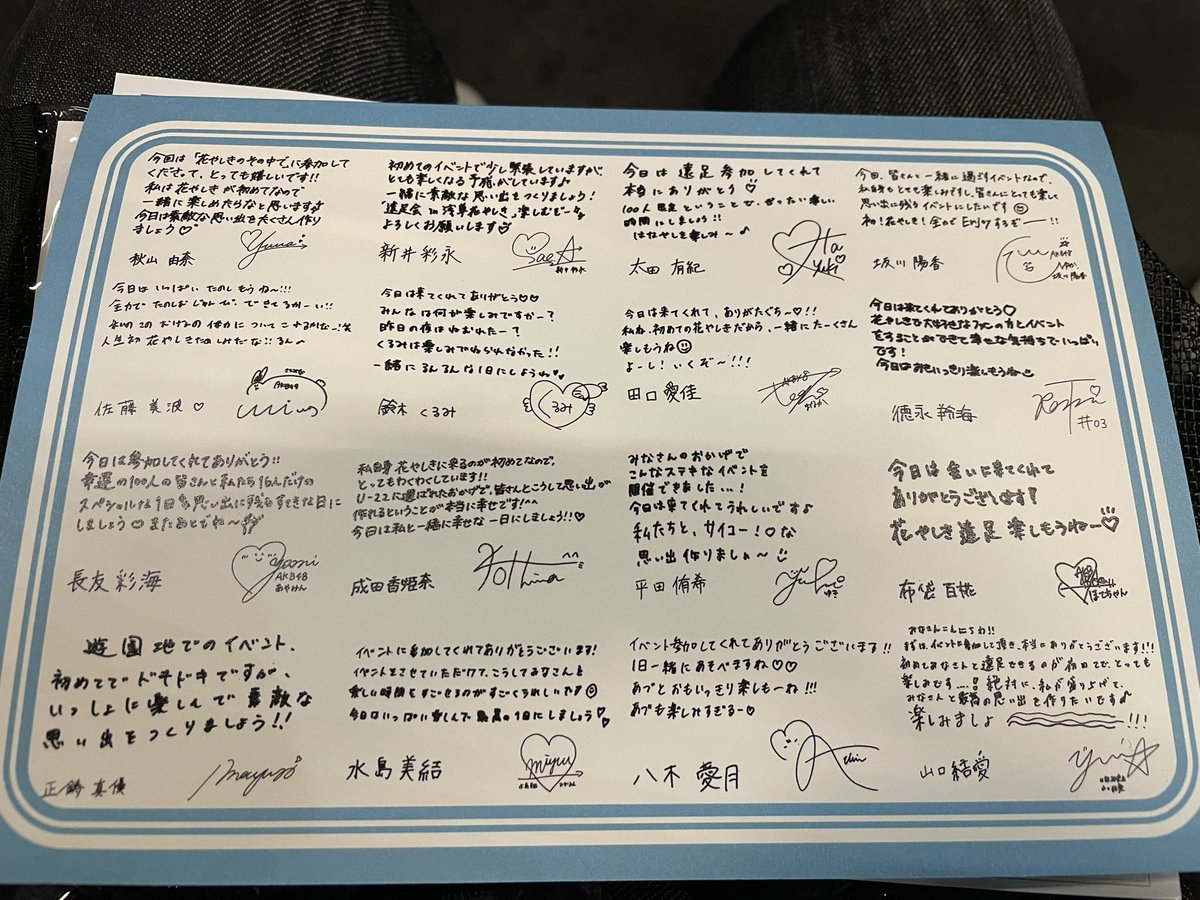 今回は「花やしきのその中で」に参加して
くださって、とっても嬉しいです!!
私は花やしきが初めてなので
一緒に楽しめたらなと思います♪
今日は素敵な思い出をたくさん作り
ましょう♡
秋山 由奈
初めてのイベントで少し緊張していますが、
とても楽しくなる予感がしています♪
一緒に素敵な思い出をつくりましょう!
"遠足会 in 浅草花やしき"楽しむぞー
よろしくお願いします
新井 彩永
SaeA
今日は 遠足 参加してくれて
本当にありがとう♡
100人限定ということで、ぜったい楽しい
時間にしましょう!!
はなやしき楽しみ〜♪
太田 有紀
Yuki
今回、皆さんと一緒に過ごすイベントなので、
私自身もとても楽しみですし、皆さんにとっても楽しい
思い出に残るイベントにしたいです☺
初!花やしき!全力で Enjoy するぞー!!
坂川 陽香
AKB48
坂川 陽香
今日は いっぱい たのしもうね〜!!!
全力で たのしむ じゅんびできてるかーい!!
人生初 花やしきたのしみだな
佐藤 美波 ♡
AKB48
今日は来てくれてありがとう♡♡
みんなは何が楽しみですかー?
昨日の夜はねむれたー?
くるみは楽しみでねられなかった!!
一緒に るんるんな1日にしようね♡
鈴木 くるみ
くるみ
今日は来てくれて、ありがたぐち〜♡!!
私ね、初めての花やしきだから、一緒にたーくさん
楽しもうね☺
よーし!いくぞ〜!!!
田口 愛佳
AKB48
今日は来てくれてありがとう♡
花やしきで大好きなファンの方とイベント
をすることができて幸せな気持ちでいっぱい
です!
今日はおもいっきり楽しもうね
徳永 羚海
#03
今日は参加してくれてありがとう!!
幸運の100人の皆さんと私たち16人だけの
スペシャルな1日を思い出に残るすてきな日に
しましょう♡またあとでね〜
長友 彩海
ayami
AKB48
あやみん
私自身 花やしきに来るのが初めてなので、
とってもわくわくしています!!
U-22に選ばれたおかげで、皆さんとこうして思い出が
作れるということが本当に幸せです!^^
今日は私と一緒に幸せな一日にしましょう!!♡
成田 香姫奈
みなさんのおかげで
こんなステキなイベントを
開催できました...!
今日は来てくれてうれしいです♪
私たちと、サイコー!♡な
思い出 作りましょ〜
平田 侑希
ゆき
今日は会いに来てくれて
ありがとうございます!
花やしき遠足 楽しもうねー♡
布袋 百椛
ほてちゃん
遊園地でのイベント、
初めてでドキドキですが、
いっしょに楽しんで素敵な
思い出をつくりましょう!!
正鋳 真優
mayuu
イベントに参加してくれてありがとうございます!
イベントをさせていただけて、こうしてみなさんと
楽しい時間をすごせるのがすごくうれしいです☺
今日はいっぱい楽しんで最高の1日にしましょう♡
水島 美結
miyu
イベント参加してくれてありがとうございます!!
1日一緒にあそべますね♡♡
あづとおもいっきり楽しもーね!!!
あづも楽しみすぎるー♡
八木 愛月
みなさんこんにちわ!!
まずは、イベントに参加して頂き、本当にありがとうございます!!!
初めてみなさんと遠足できるのが初めてで、とっても
楽しみです...!絶対に、私が盛り上げて、
みなさんと最高の思い出を作りたいです♪
楽しみましょ〜!!!
山口 結愛